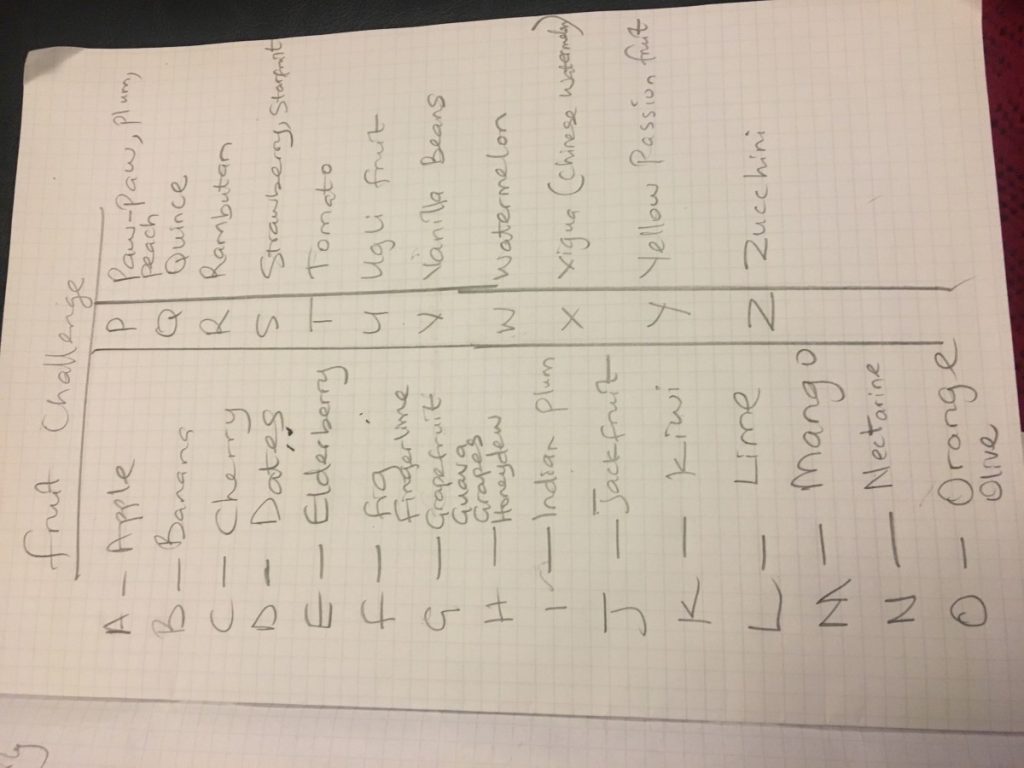 Fruit Challenge
A - Apple
B - Banana
C - Cherry
D - Dates
E - Elderberry
F - Fig
Fingerlime
G - Grapefruit
Guava
Grapes
H - Honeydew
I - Indian Plum
J - Jackfruit
K - Kiwi
L - Lime
M - Mango
N - Nectarine
O - Orange
Olive
P Paw-Paw, plum,
peach
Q Quince
R Rambutan
S Strawberry, Starfruit
T Tomato
U Ugli fruit
V Vanilla Beans
W Watermelon
X Xigua (Chinese Watermelon)
Y Yellow Passion fruit
Z Zucchini